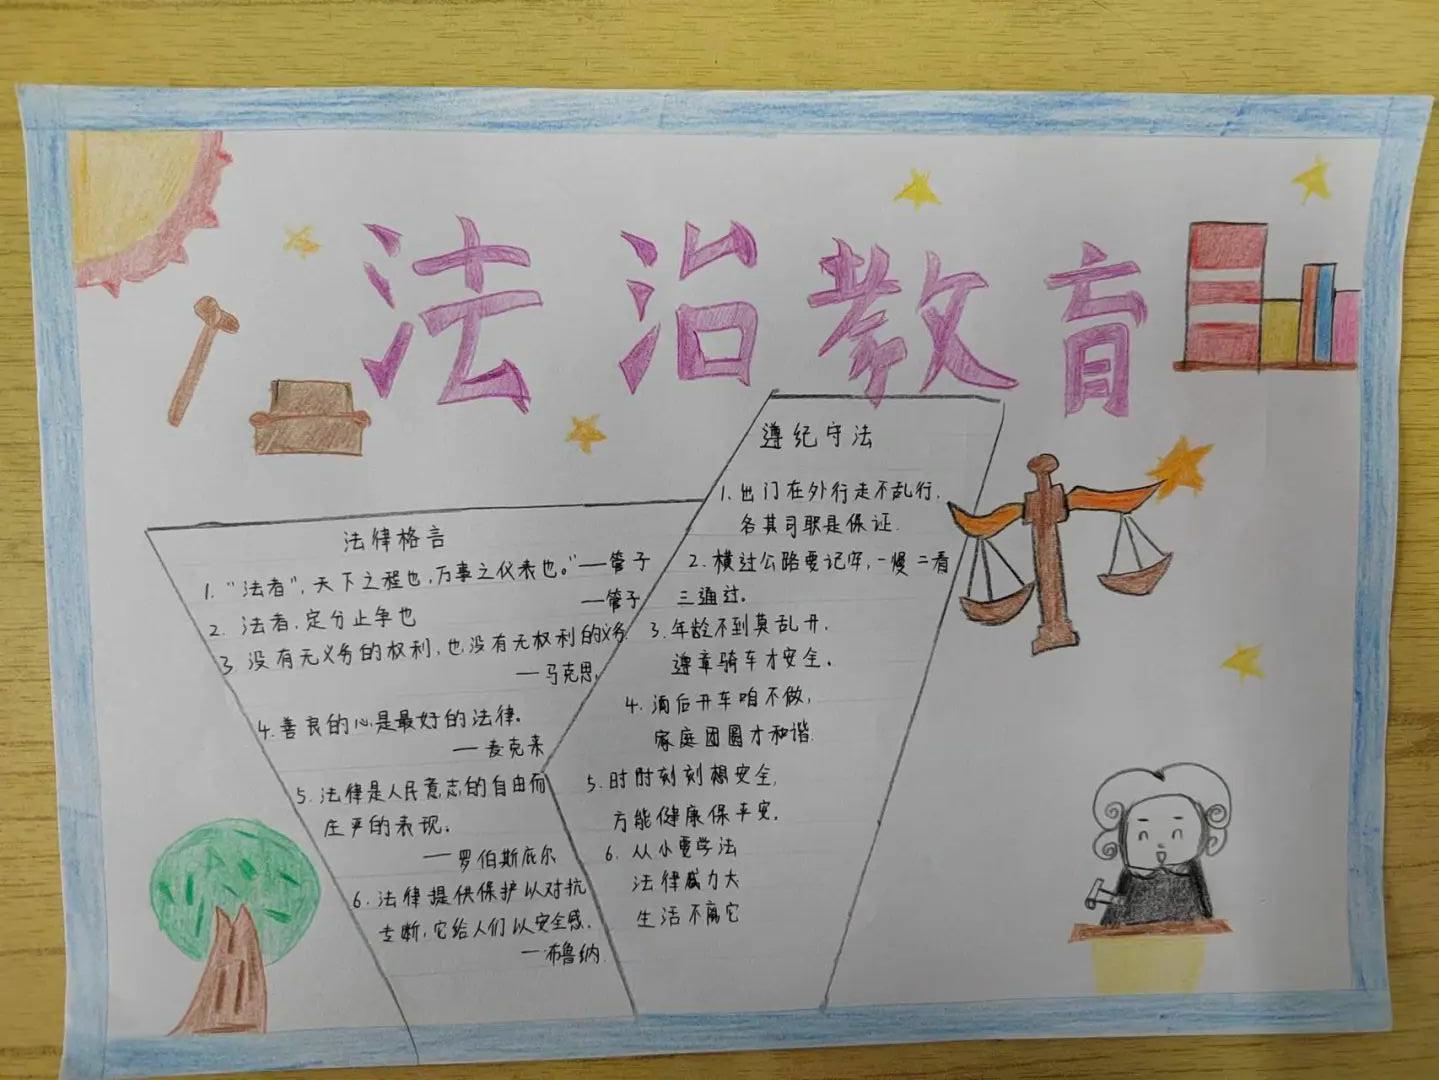 法治教育
法律格言
1. “法者”，天下之程也，万事之仪表也。”——管子
2. 法者，定分止争也 ——管子
3 没有无义务的权利，也没有无权利的义务.
——马克思
4. 善良的心是最好的法律。
——麦克莱
5. 法律是人民意志的自由而
庄严的表现。
——罗伯斯庇尔
6. 法律提供保护以对抗
专断，它给人们以安全感.
——布鲁纳.
遵纪守法
1. 出门在外行走不乱行，
各其司职是保证.
2. 横过公路要记牢，一慢二看
三通过。
3. 年龄不到莫乱开，
遵章骑车才安全。
4. 酒后开车咱不做，
家庭团圆才和谐.
5. 时时刻刻想安全，
方能健康保平安.
6. 从小要学法
法律威力大
生活不离它